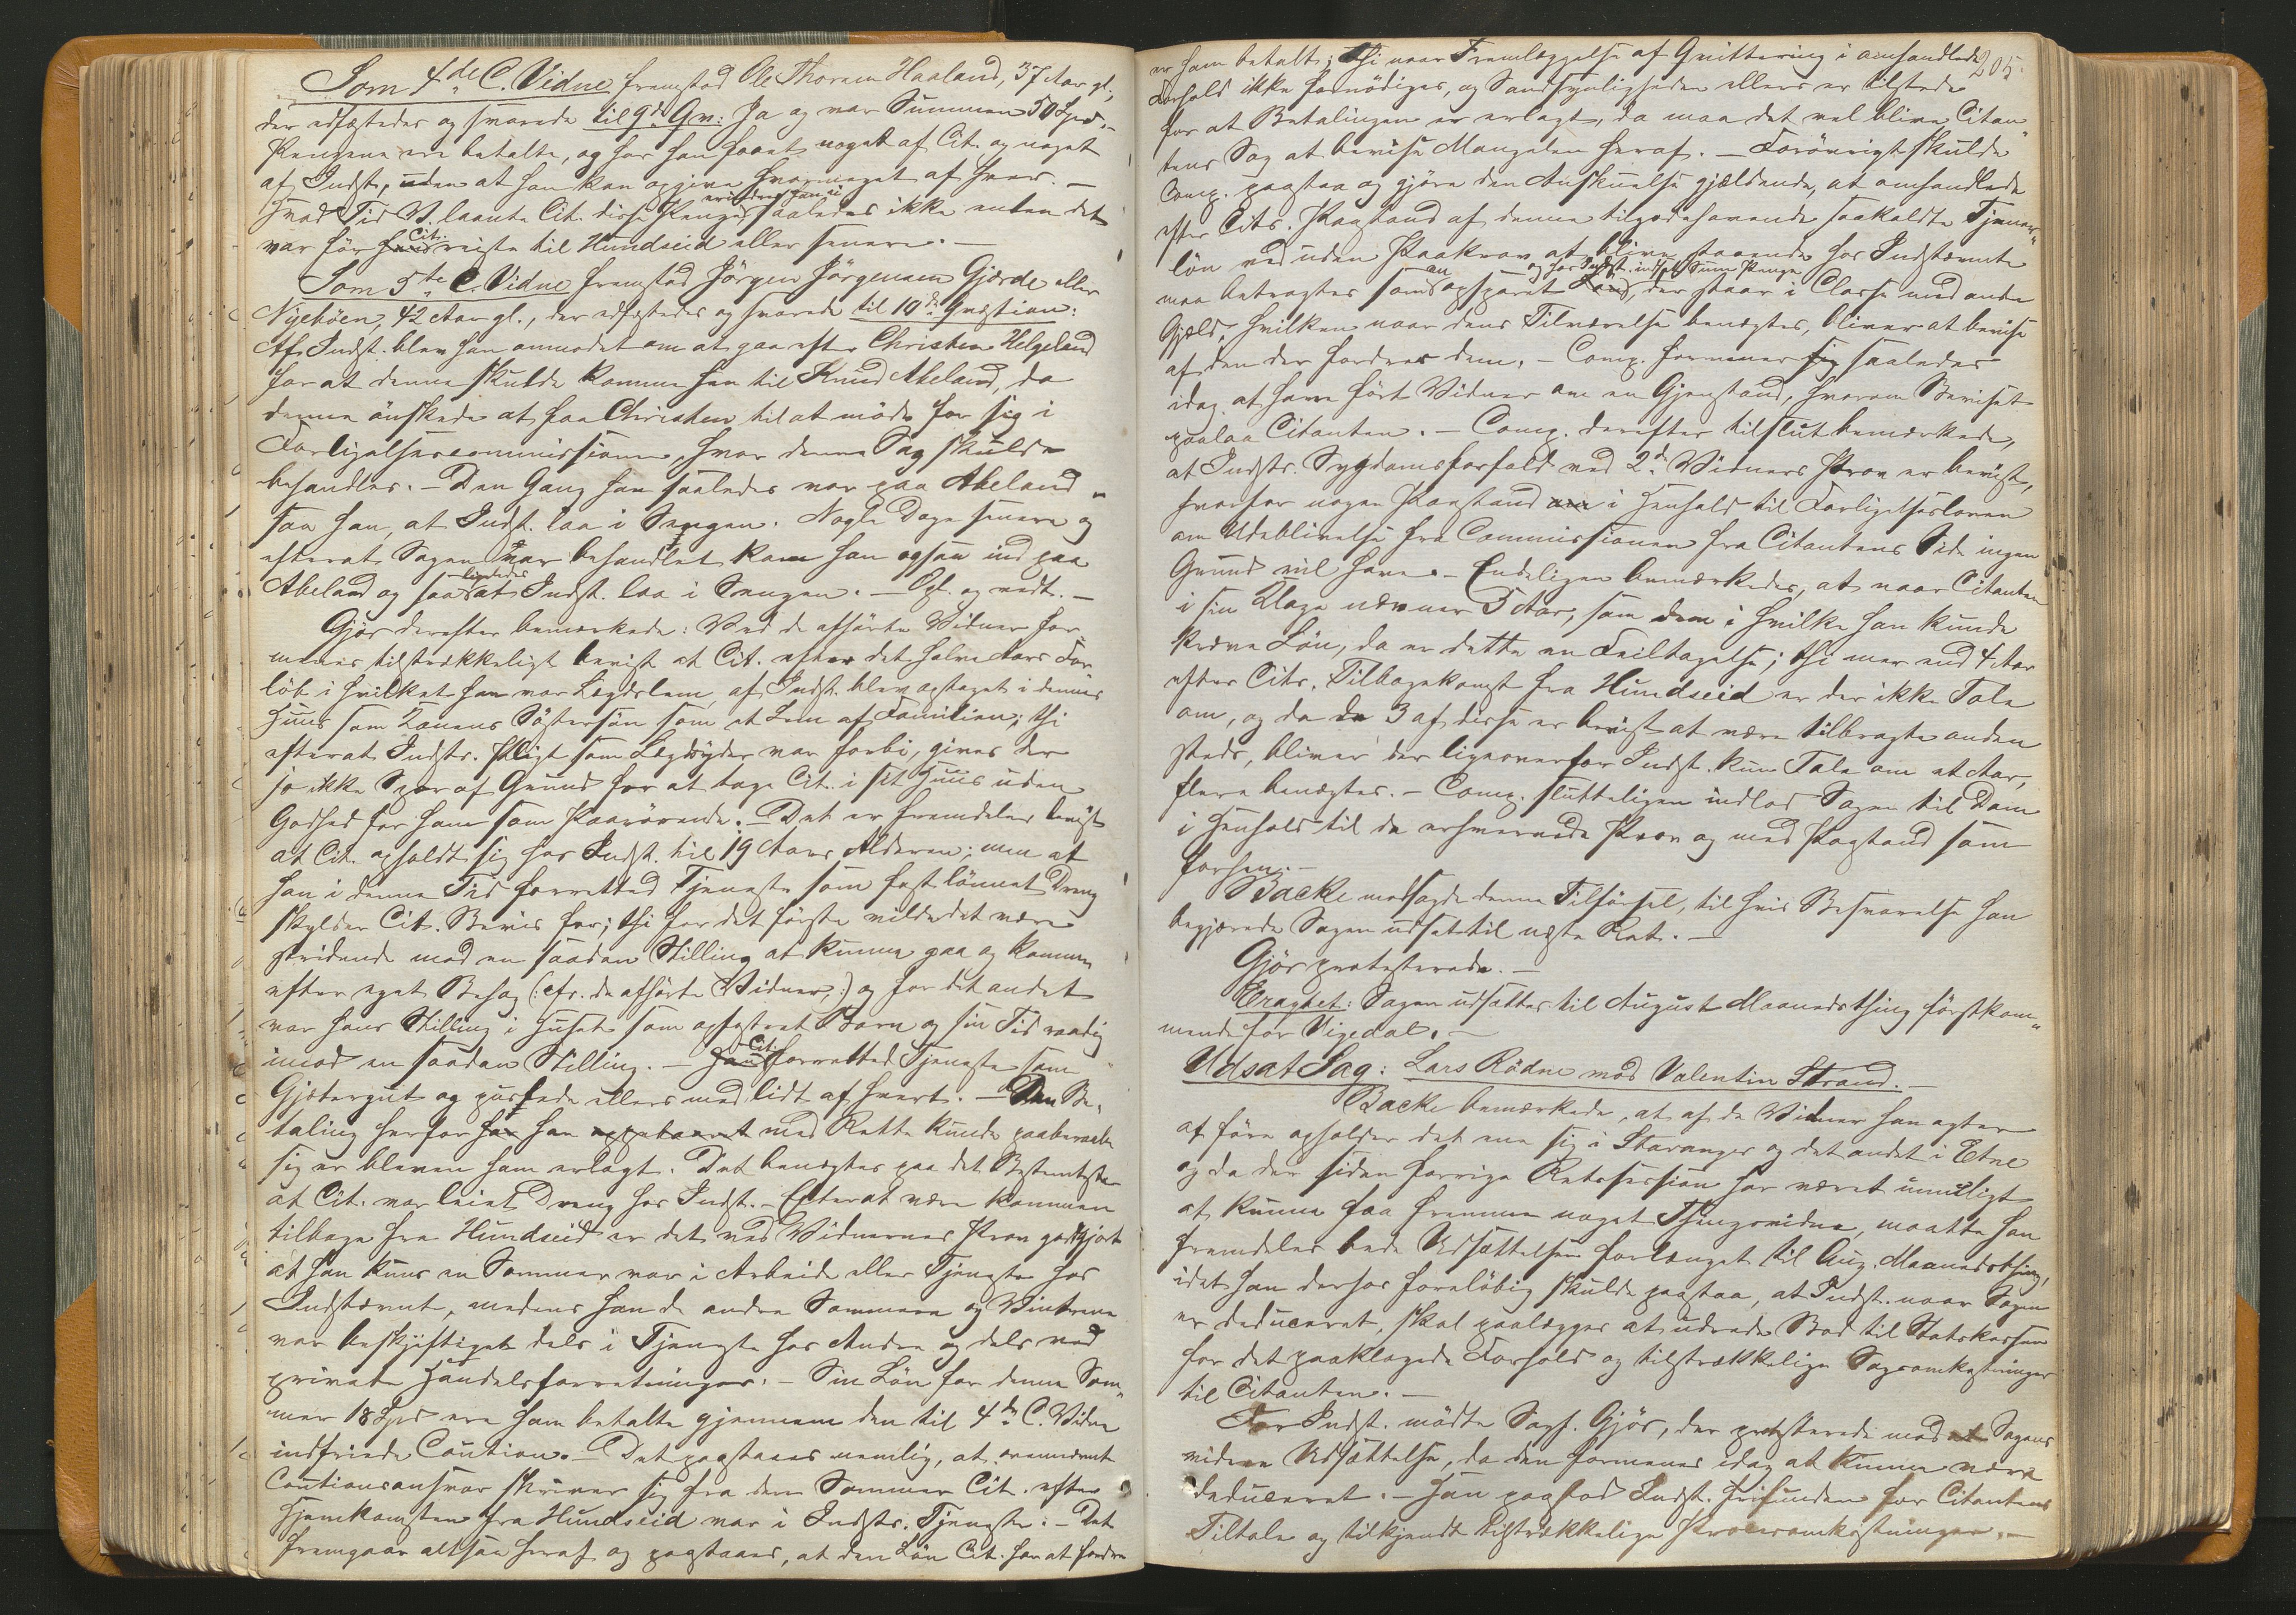 Som 4de C. Vidne fremstod Ole Thorsen Haaland, 37 Aar gl.,
der edfæstedes og svarede til 9de Qv: Ja og var Summen 50 Spd. -
Pengene ere betalte, og har han faaet noget af Cit. og noget
af Indst., uden at han kan opgive hvormeget af hver. -
Hvad Tid V. laante Cit. disse Penge erindrer han ei saaledes ikke enten det
var før Cit. reiste til Hundseid eller senere. -
Som 5te C. Vidne fremstod Jörgen Jörgensen Gjærde eller
Nyebøen, 42 Aar gl., der edfæstedes og svarede til 10de Qvæstion:
Af Indst. blev han anmodet om at gaa efter Christen Helgeland
for at denne skulde komme hen til Knud Abeland, da
denne ønskede at faa Christen til at møde for sig i
Forligelsescommissionen, hvor denne Sag skulde
behandles. - Den Gang han saaledes var paa Abeland
saa han, at Indst. laa i Sengen. Nogle Dage senere og
efterat Sagen var behandlet kom han ogsaa ind paa
Abeland og saa ligeledes at Indst. laa i Sengen. - Opl. og vedt. -
Gjör derefter bemærkede: Ved de afhørte Vidner for
menes tilstrækkeligt bevist at Cit. efter det halve Aars For
løb i hvilket han var Lægdslem, af Indst. blev optaget i dennes
Huus som Konens Søstersøn som et Lem af Familien; thi
efterat Indsts. Pligt som Lægdsyder var forbi, gives der
jo ikke Spor af Grund for at tage Cit. i sit Huus uden
Godhed for ham som Paarørende. - Det er fremdeles bevist
at Cit. opholdt sig hos Indst. til 19 Aars Alderen; men at
han i denne Tid forretted Tjeneste som fast lønnet Dreng
skylder Cit. Bevis for; thi for det første vilde det være
stridende mod en saadan Stilling at kunne gaa og komme
efter eget Behag (: cfr. de afhørte Vidner, :) og for det andet
var hans Stilling i Huset som opfostret Barn og sin Tid
imod en saadan Stilling. - Cit. forretted Tjeneste som
Gjætergut og puslede ellers med lidt af hvert. - Den Be„
taling herfor han med Rette kunde paaberaabe
sig er bleven ham erlagt. Det benægtes paa det Bestemteste
at Cit. var leiet Dreng hos Indst. - Efterat være kommen
tilbage fra Hundseid er det ved Vidnernes Prov godtgjort
at han kuns en Sommer var i Arbeide eller Tjeneste hos
Indstævnte, medens han de andre Sommere og Vintrene
var beskjæftiget dels i Tjeneste hos Andre og dels ved
private Handelsforretninger. - Sin Løn for denne Som„
mer 18 Spd ere ham betalte gjennem den til 4de C. Vidne
indfriede Caution. - Det paastaaes nemlig, at ovennævnte
Cautionsansvar skriver sig fra den Sommer Cit. efter
Hjemkomsten fra Hundseid var i Indsts. Tjeneste. - Det
fremgaar altsaa heraf og paastaaes, at den Løn Cit. har at fordre
205.
er ham betalt; thi naar Fremlæggelse af Qvittering i omhandlede
Forhold ikke fornødiges, og Sandsynligheden ellers er tilstede
for at Betalingen er erlagt, da maa det vel blive Citan„
tens Sag at bevise Mangelen heraf. - Forøvrigt skulde
Comp. paastaa og gjøre den Anskuelse gjældende, at omhandlede
efter Cits. Paastand af denne tilgodehavende saakaldte Tjener„
løn ved uden Paakrav at blive staaende hos Indstævnte
maa betragtes som en opsparet og hos Indst. indsat Sum Penge, der staar i Classe med anden
Gjæld, hvilken naar dens Tilværelse benægtes, bliver at bevise
af den der fordrer dem. - Comp. formener sig saaledes
idag at have ført Vidner om en Gjenstand, hvorom Beviset
paalaa Citanten. - Comp. derefter tilslut bemærkede,
at Indsts. Sygdomsforfald ved 2de Vidners Prov er bevist,
hvorfor nogen Paastand i Henhold til Forligelsesloven
om Udeblivelse fra Commissionen fra Citantens Side ingen
Grund vil have. - Endeligen bemærkedes, at naar Citanten
i sin Klage nævner 5 Aar, som dem i hvilke han kunde
kræve Løn, da er dette en Feiltagelse; thi mer end 4 Aar
efter Cits. Tilbagekomst fra Hundseid er der ikke Tale
om, og da de 3 af disse er bevist at være tilbragte anden
steds, bliver der ligeoverfor Indst. kun Tale om et Aar,
flere benægtes. - Comp. slutteligen indlod Sagen til Dom
i Henhold til de erhvervede Prov og med Paastand som
forhen. -
Backe modsagde denne Tilførsel, til hvis Besvarelse han
begjærede Sagen udsat til næste Ret. -
Gjör protesterede. -
Eragtet: Sagen udsættes til August Maanedsthing førstkom„
mende for Vigedal. -
Udsat Sag: Lars Rödne mod Valentin Strand. -
Backe bemærkede, at af de Vidner han agter
at føre opholder det ene sig i Stavanger og det andet i Etne
og da der siden forrige Retssession har været umuligt
at kunne faa fremmet noget Thingsvidne, maatte han
fremdeles bede Udsættelsen forlænget til Aug. Maanedsthing,
idet han derhos foreløbig skulde paastaa, at Indst. naar Sagen
er deduceret, skal paalægges at udrede Bod til Statskassen
for det paaklagede Forhold og tilstrækkelige Sagsomkostninger
til Citanten. -
For Indst. mødte Sagf. Gjör, der protesterede mod Sagens
videre Udsættelse, da den formenes idag at kunne være
deduceret. - Han paastod Indst. frifunden for Citantens
Tiltale og tilkjendt tilstrækkelige Procesomkostninger. -